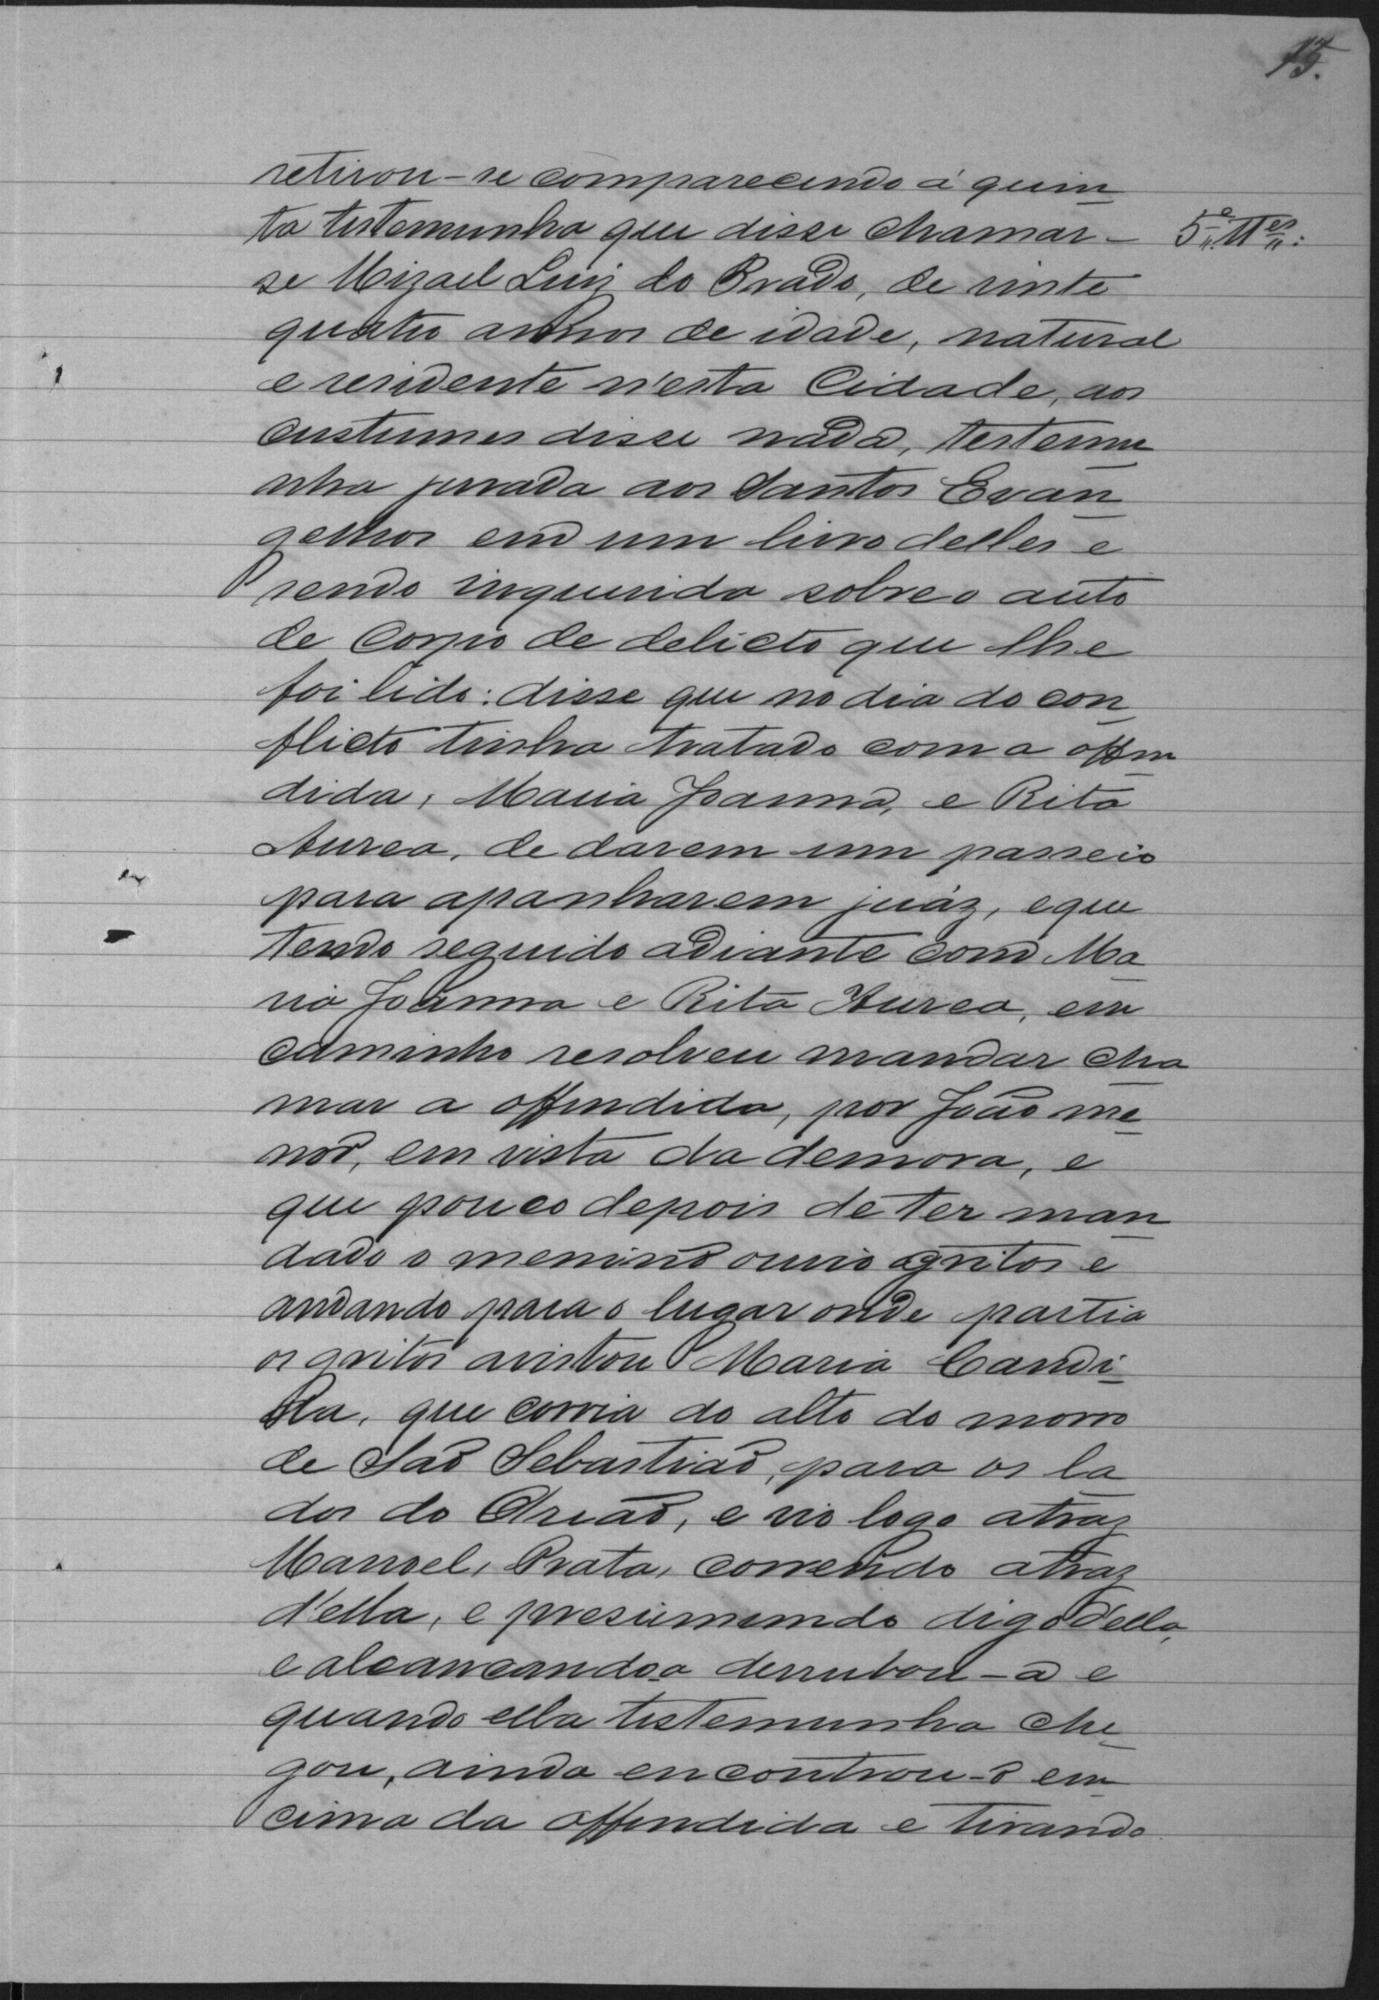 15.
retirou-se comparecendo á quin
ta testemunha que disse chamar-
5ª Tes:
se Mizael Luiz do Prado, de vinte
quatro annos de idade, natural
e residente n'esta Cidade, aos
custumes disse nada, testemu
nha jurada aos Santos Evan
gelhos em um livro delles e
sendo inquerida sobre o auto
de corpo de delicto que lhe
foi lido: disse que no dia do con
flicto tinha tratado com a offen
dida, Maria Joanna, e Rita
Aurea, de darem um passeio
para apanharem juáz, e que
tendo seguido adiante com Ma
ria Joanna e Rita Aurea, em
caminho resolveu mandar cha
mar a offendida, por João me
nor, em vista da demora, e
que pouco depois de ter man
dado o menino ouvio gritos e
andando para o lugar onde partia
os gritos avistou Maria Candi-
da, que corria do alto do morro
de São Sebastião, para os la
dos do Arião, e vio logo atraz
Manoel, Prata, correndo atraz
d'ella, e presumindo digo d'ella,
e alcancando-a derrubou-a e
quando ella testemunha che
gou, ainda encontrou-o em
cima da offendida e tirando